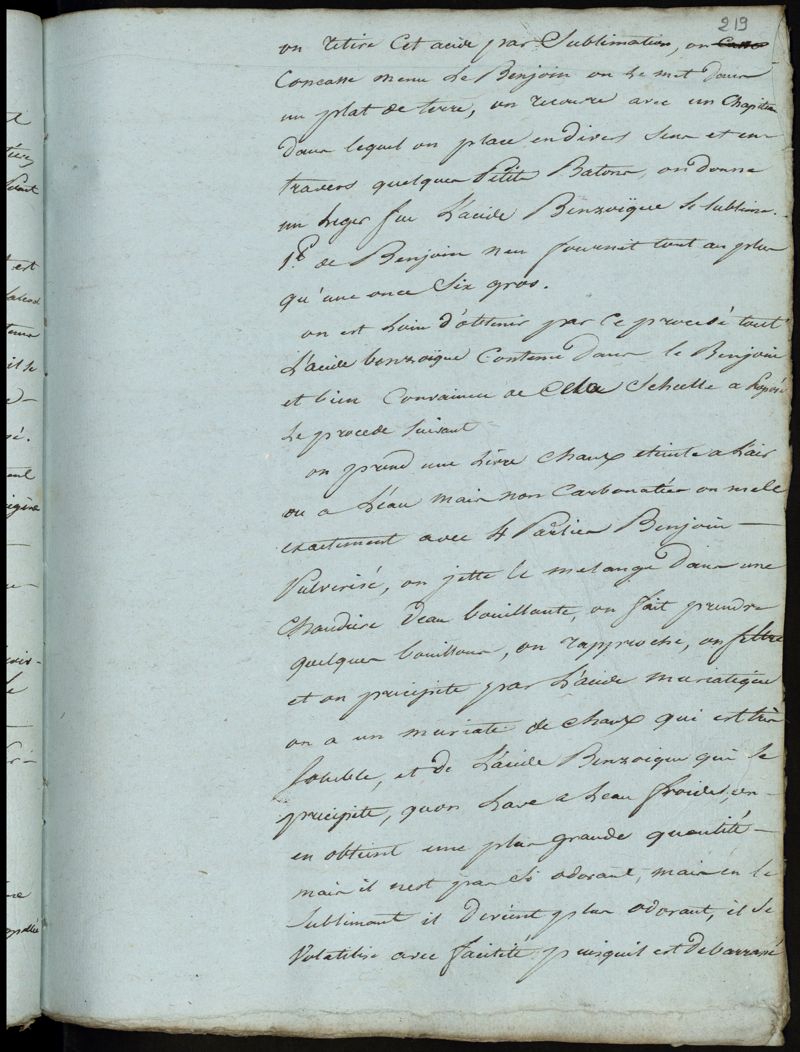 219
on retire cet acide par Sublimation, on
Concasse menu Le Benjoin on Le met dans
un plat de terre, on recouvre avec un Chapiteau
dans lequel on place en divers sens et en
travers quelques Petits Batons, on donne
un Leger feu L'acide Benzoïque Se Sublime.
1.℔ de Benjoin n'en fournit tout au plus
qu'une once Six gros.
on est Loin d'obtenir par ce procedé tout
L'acide benzoïque Contenu dans le Benjoin
et bien Convaincu de Cela Scheelle a Proposé
Le procede Suivant
on prend une Livre Chaux eteinte a L'air
ou a L'eau mais non Carbonatée on mele
exactement avec 4 Parties Benjoin —
Pulverisé, on jette le melange dans une
Chaudiere d'eau bouillante, on fait prendre
quelques bouillons, on rapproche, on filtre
et on precipite par L'acide muriatique
on a un muriate de chaux qui est très
Soluble, et de L'acide Benzoique qui Se
precipite, qu'on Lave a Leau froide, on —
en obtient une plus grande quantité —
mais il n'est pas Si odorant, mais en le
Sublimant il devient plus odorant, il Se
Volatilise avec facilité puisquil est debarrassé